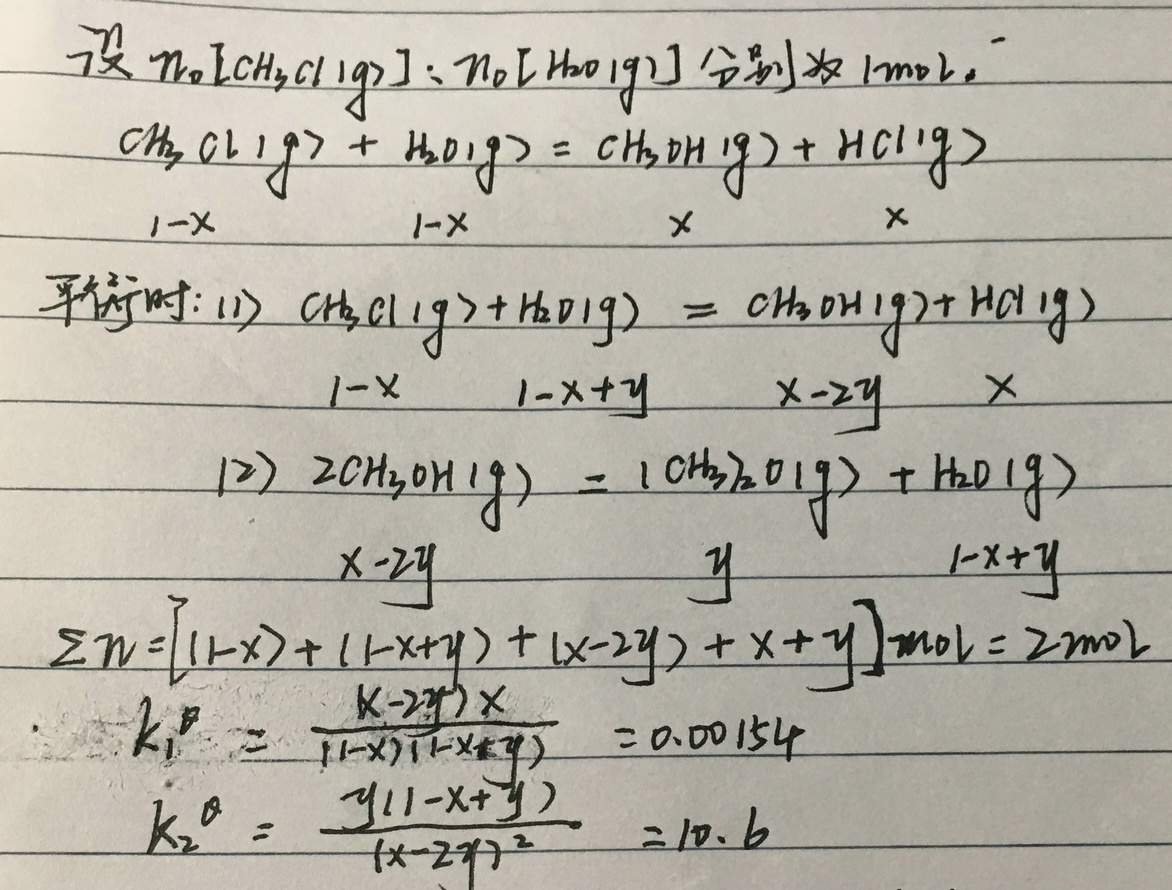 设 n₀[CH₃Cl(g)]、n₀[H₂O(g)]分别为1mol.
CH₃Cl(g) + H₂O(g) = CH₃OH(g) + HCl(g)
1-x 1-x x x
平衡时: (1) CH₃Cl(g) + H₂O(g) = CH₃OH(g) + HCl(g)
1-x 1-x+y x-2y x
(2) 2CH₃OH(g) = (CH₃)₂O(g) + H₂O(g)
x-2y y 1-x+y
Σn = [(1-x) + (1-x+y) + (x-2y) + x + y] mol = 2mol
k₁^θ = (x-2y)x / (1-x)(1-x+y) = 0.00154
k₂^θ = y(1-x+y) / (x-2y)² = 10.6